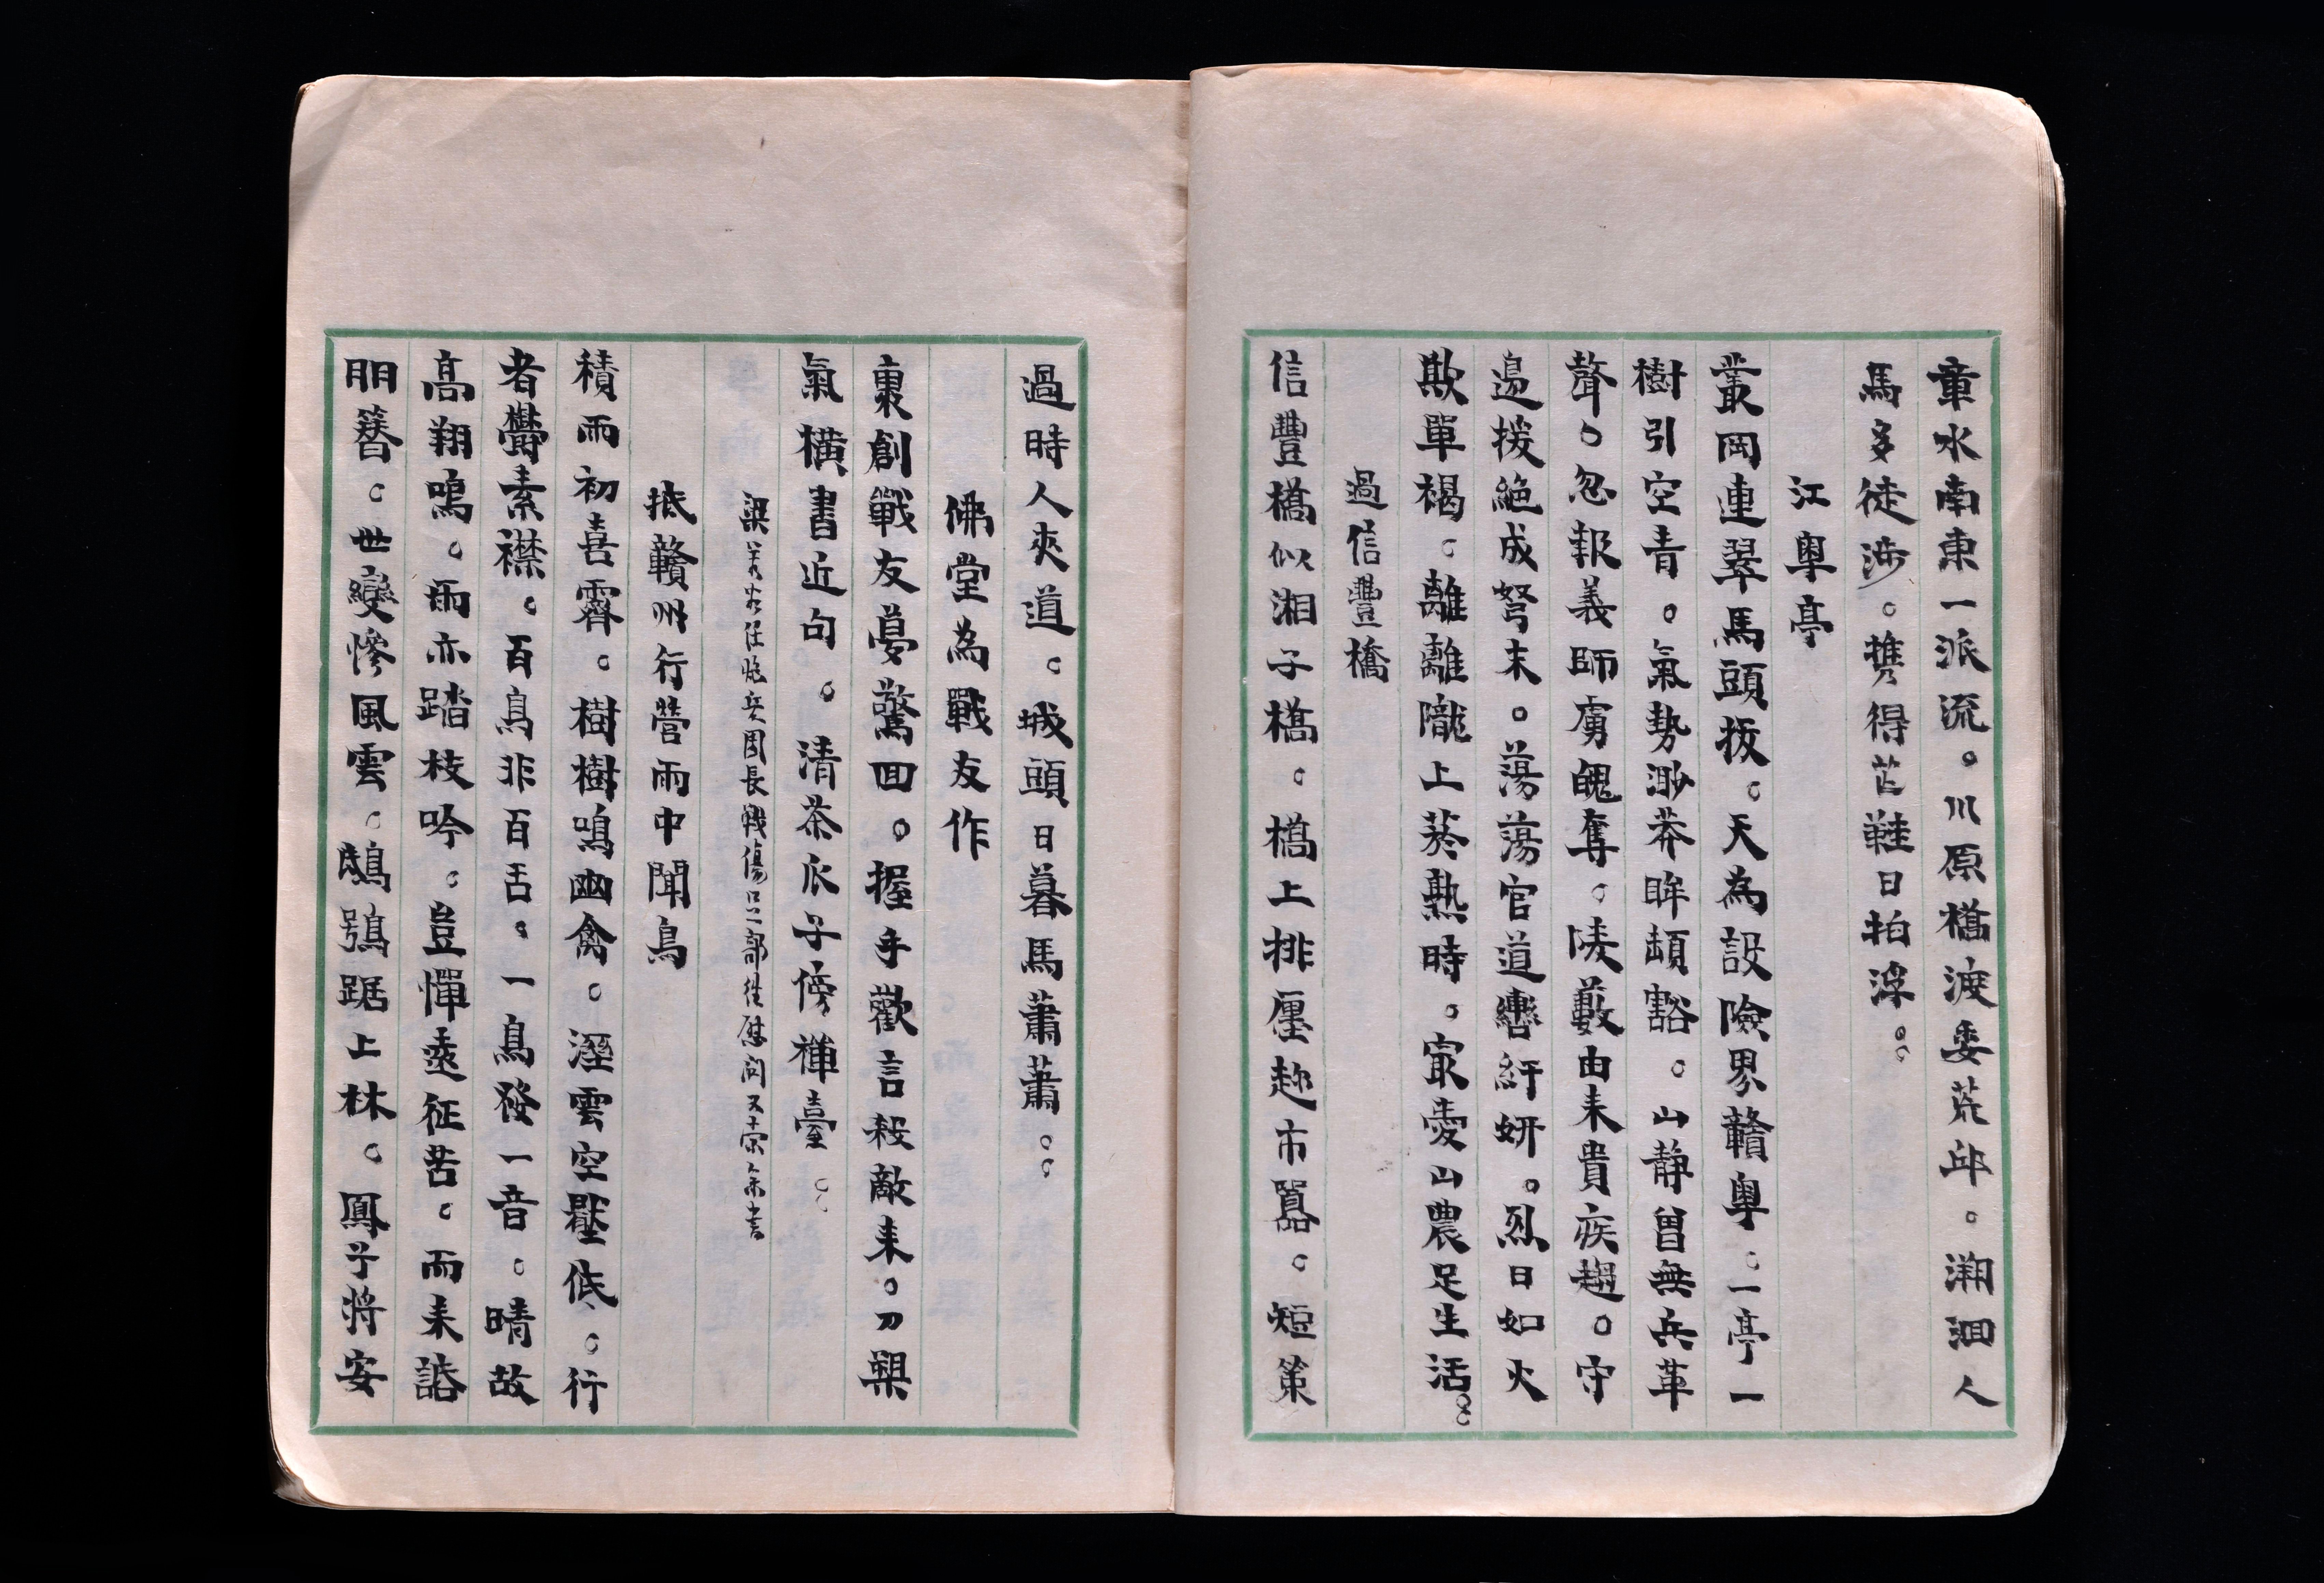 章水南東一派流。川原橋渡委荒邱。溯洄人
馬多徒涉。攜得芒鞋日拍浮。。
江粤亭
叢岡連翠馬頭拔。天為設險界贛粤。一亭一
樹引空青。氣勢渺莽眸頓豁。山靜曾無兵革
聲。忽報義師虜魄奪。陵藪由来貴疾趨。守
邊援絕成弩末。蕩蕩官道轡紆妍。烈日如火
欺單褐。離離隴上菸熟時。㝡愛山農足生活。。
過信豐橋
信豐橋似湘子橋。橋上排㕓趂市囂。短策
過時人夾道。城頭日暮馬蕭蕭。。
佛堂為戰友作
裹創戰友夢驚回。握手歡言殺敵来。刀槊
氣橫書近句。清茶瓜子傍禪臺。。
梁 任 兵團長戰傷 部往慰問又索余書
抵贛州行營雨中聞鳥
積雨初喜霽。樹樹鳴幽禽。溼雲空壓低。行
者鬱素襟。百鳥非百舌。一鳥發一音。晴故
高翔鳴。雨亦踏枝吟。豈憚遠征苦。而来諮
朋簪。世變慘風雲。鴟鴞踞上林。鳳兮將安